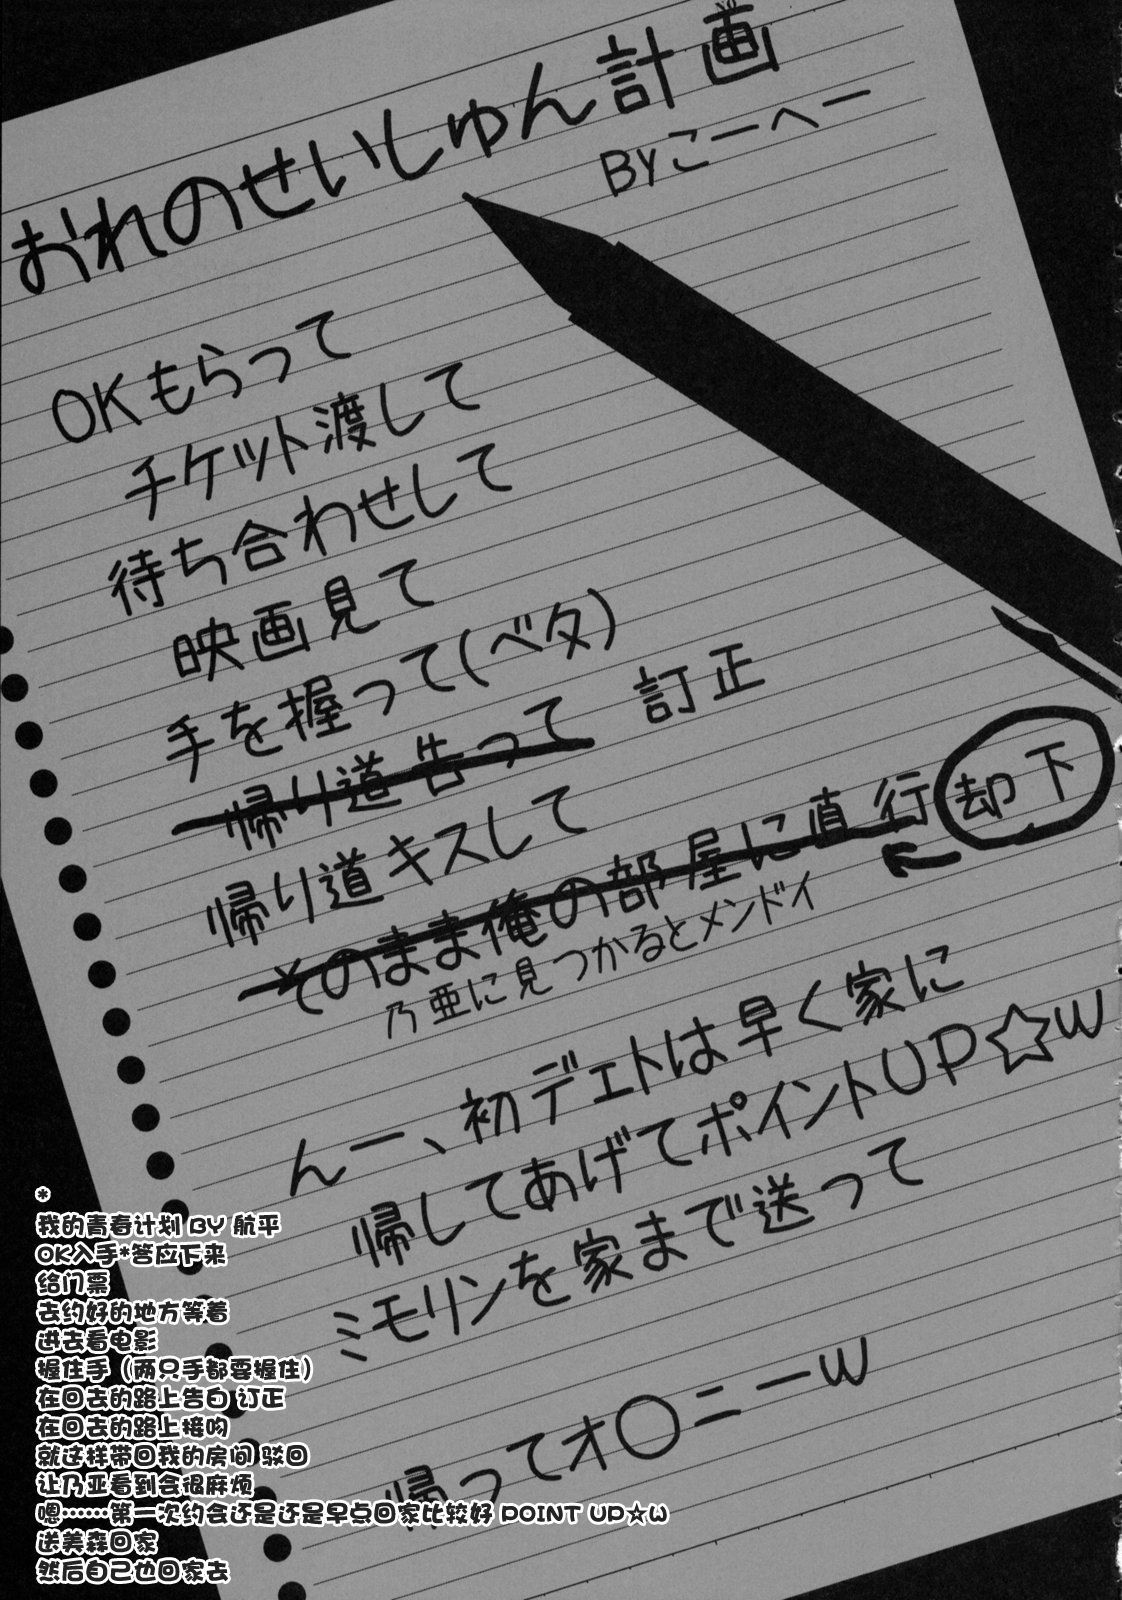 おれのせいしゅん計画
BYこーへー
OKもらって
チケット渡して
待ち合わせして
映画見て
手を握って(ベタ)
帰り道告って 訂正
帰り道キスして
そのまま俺の部屋に直行 却下
乃亜に見つかるとメンドイ
んー、初デェトは早く家に
帰してあげてポイントUP☆w
ミモリンを家まで送って
帰ってオ〇ニーw
*
我的青春计划 BY 航平
OK入手*答应下来
给门票
去约好的地方等着
进去看电影
握住手（两只手都要握住）
在回去的路上告白 订正
在回去的路上接吻
就这样带回我的房间 驳回
让乃亚看到会很麻烦
嗯……第一次约会还是还是早点回家比较好 POINT UP☆W
送美森回家
然后自己也回家去